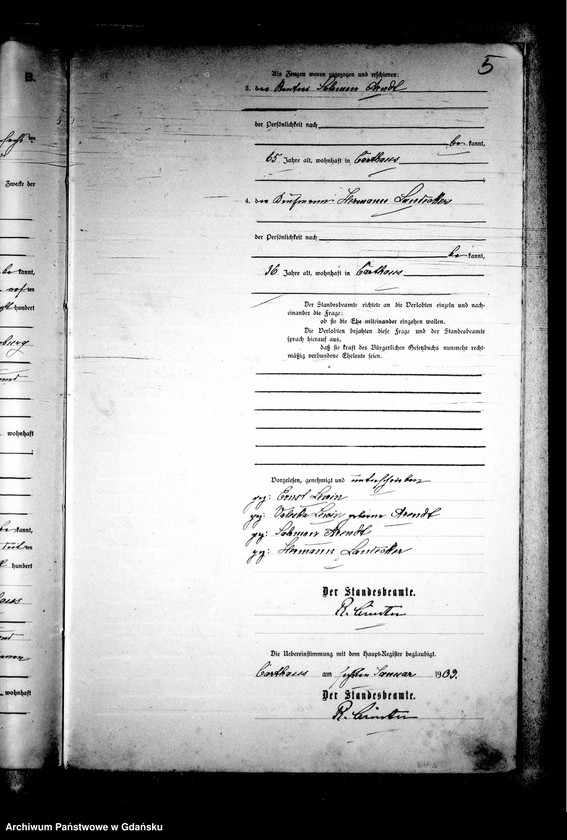 B.
5
Zwecke der
kannt,
hundert
wohnhaft
kannt,
hundert
wohnhaft
Als Zeugen waren zugezogen und erschienen:
3. der Rentner Salomon Arndt
der Persönlichkeit nach
be kannt,
65 Jahre alt, wohnhaft in Carthaus
4. der Kaufmann Hermann
der Persönlichkeit nach
be kannt,
36 Jahre alt, wohnhaft in Carthaus
Der Standesbeamte richtete an die Verlobten einzeln und nach-
einander die Frage:
ob sie die Ehe miteinander eingehen wollen.
Die Verlobten bejahten diese Frage und der Standesbeamte
sprach hierauf aus,
daß sie kraft des Bürgerlichen Gesetzbuchs nunmehr recht-
mäßig verbundene Eheleute seien.
Vorgelesen, genehmigt und unterschrieben
gez: Ernst Lewin
gez: Lewin geborene Arndt
gez: Salomon Arndt
gez: Hermann
Der Standesbeamte.
R.
Die Uebereinstimmung mit dem Haupt-Register beglaubigt.
Carthaus am Januar 1903.
Der Standesbeamte.
R.
Archiwum Państwowe w Gdańsku